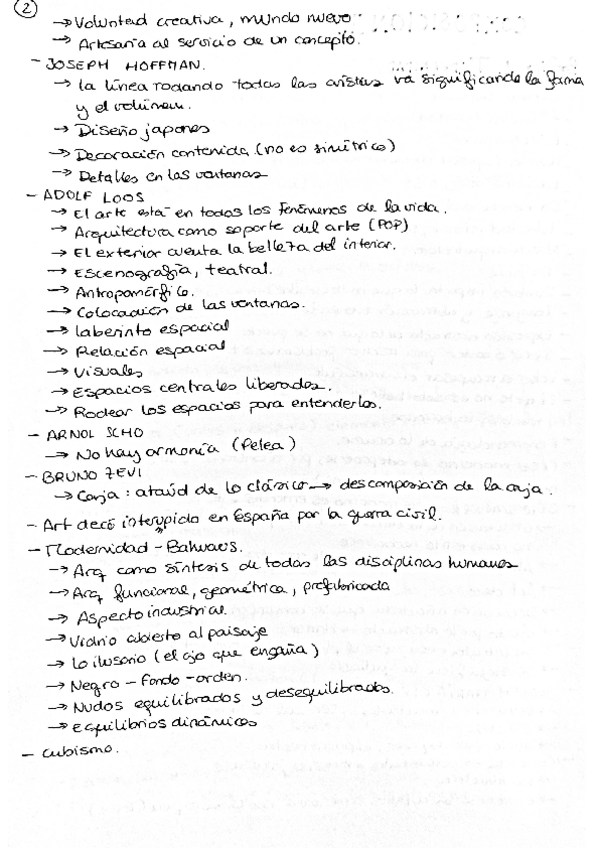 2
→ Voluntad creativa, mundo nuevo
→ Artesanía al servicio de un concepto.
- JOSEPH HOFFMAN.
→ la línea rodando todas las aristas va significando la forma
y el volumen.
→ Diseño japones
→ Decoración contenida (no es simétrico)
→ Detalles en las ventanas
- ADOLF LOOS
→ El arte está en todos los fenómenos de la vida.
→ Arquitectura como soporte del arte (POP)
→ El exterior cuenta la belleza del interior.
→ Escenografía, teatral.
→ Antropomórfico.
→ Colocación de las ventanas.
→ laberinto espacial
→ Relación espacial
→ Visuales
→ Espacios centrales liberados.
→ Rodear los espacios para entenderlos.
- ARNOL SCHO
→ No hay armonía (Pelea)
- BRUNO ZEVI
→ Caja: ataúd de lo clásico → descomposición de la caja.
- Art decó interrupido en España por la guerra civil.
- Modernidad - Bahuaus.
→ Arq como síntesis de todas las disciplinas humanas
→ Arq funcional, geométrica, prefabricada
→ Aspecto industrial
→ Vidrio abierto al paisaje
→ Lo ilusorio (el ojo que engaña)
→ Negro - fondo - orden.
→ Nudos equilibrados y desequilibrados.
→ Equilibrios dinámicos
- Cubismo.